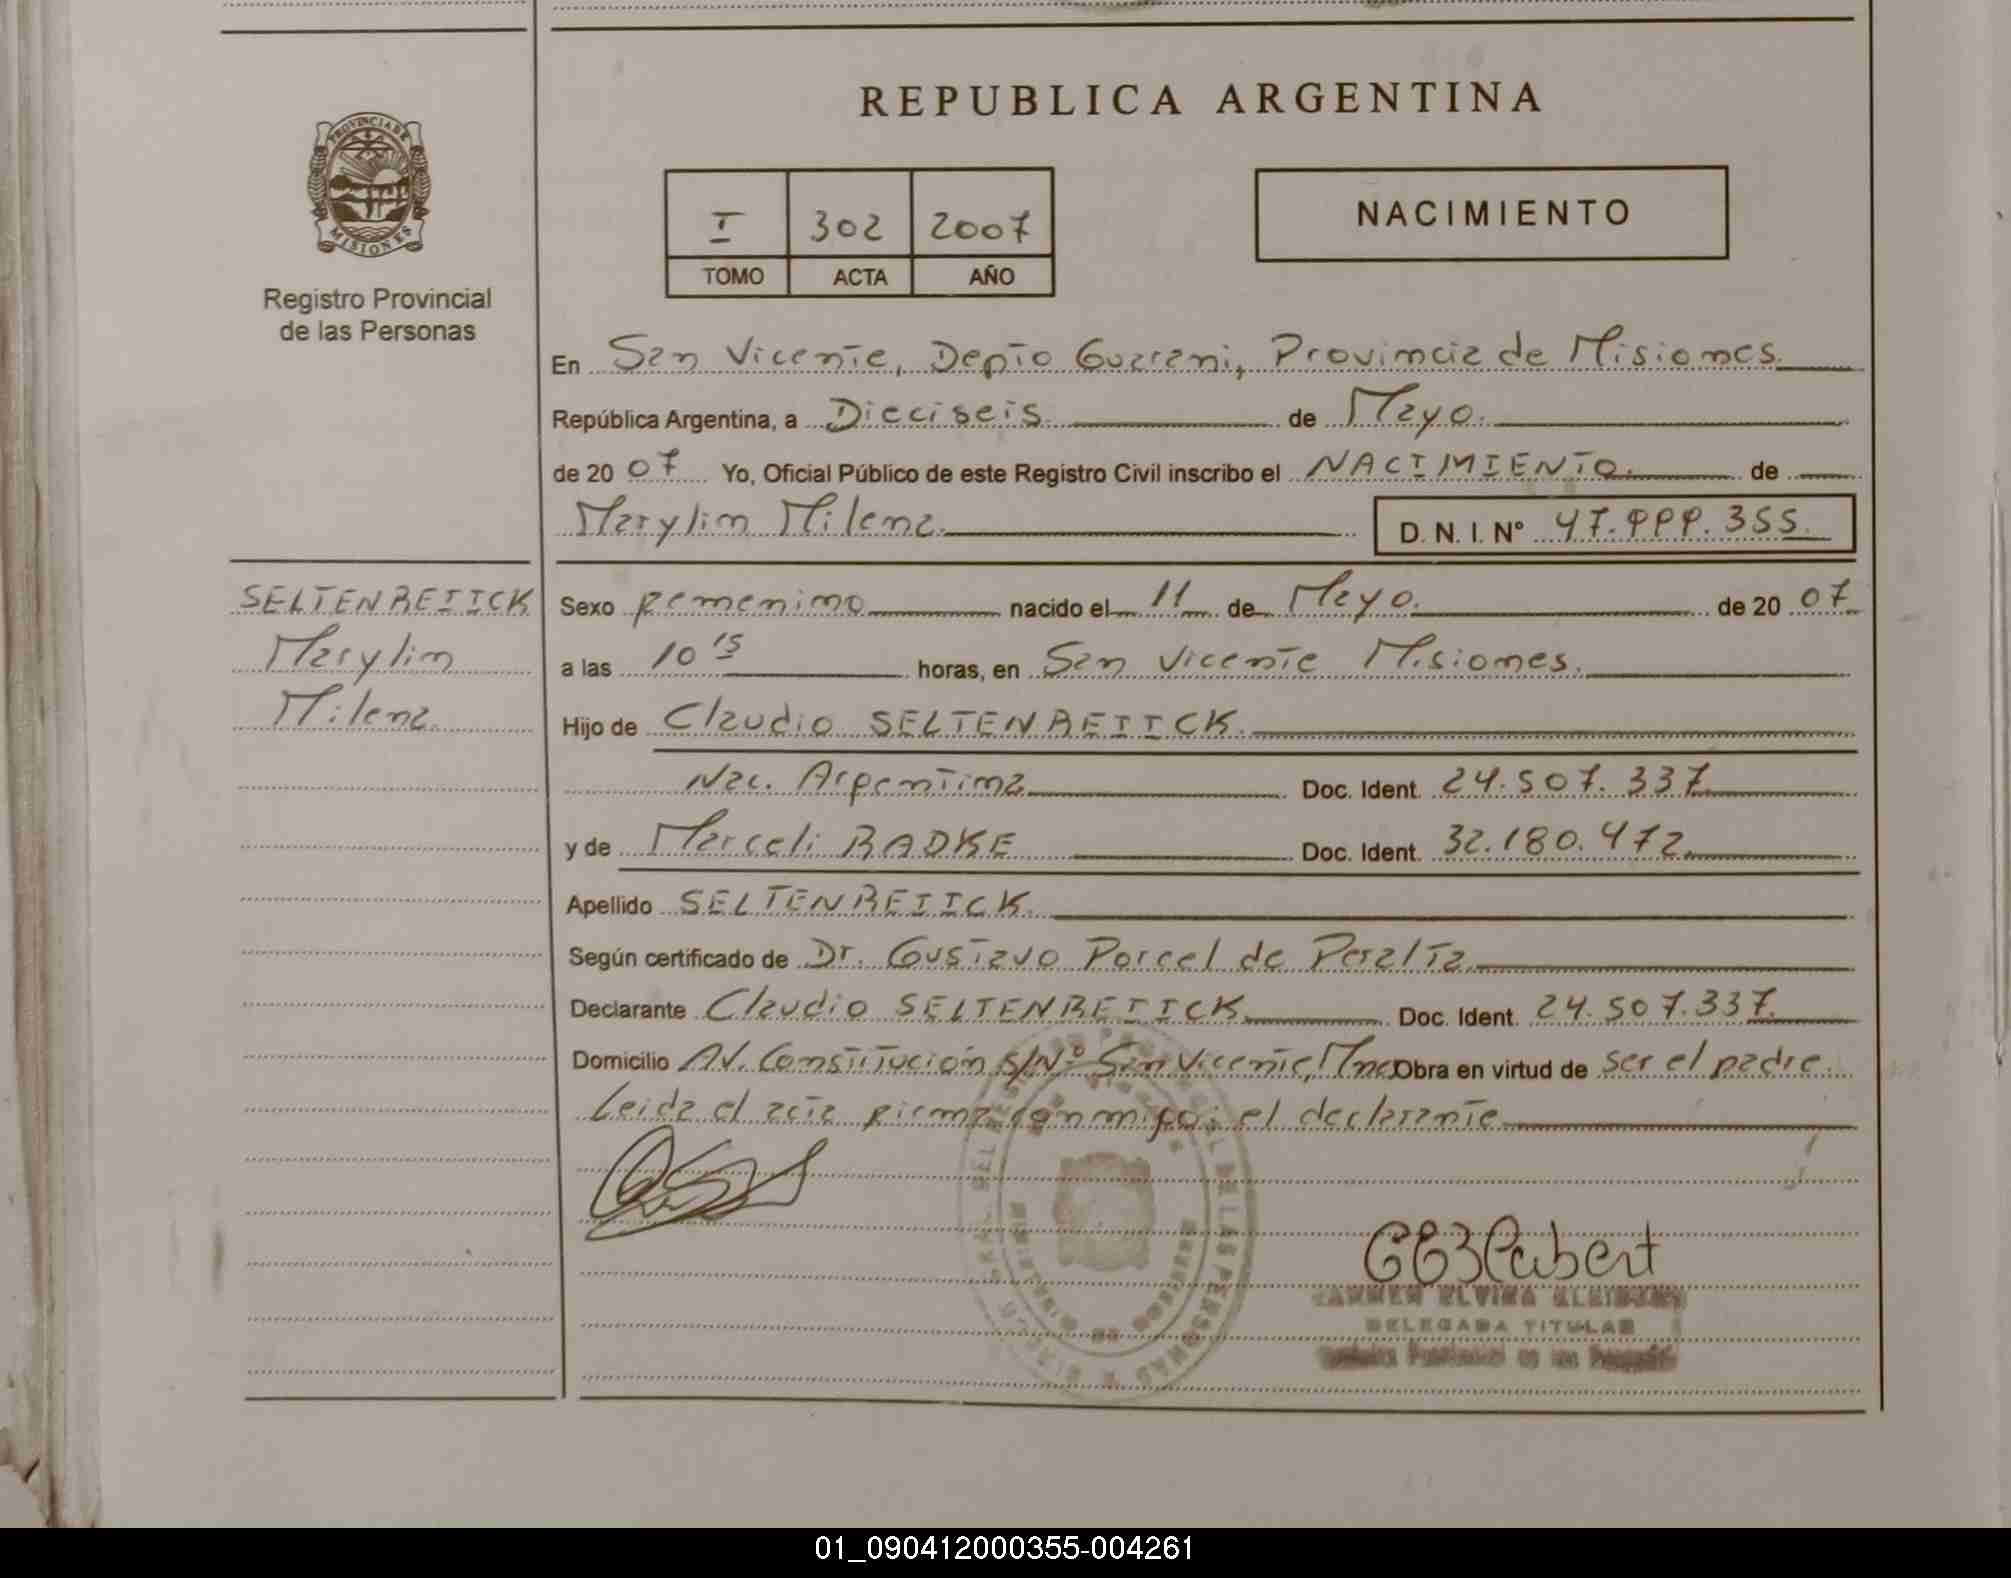 REPUBLICA ARGENTINA
PROVINCIA DE
MISIONES
Registro Provincial
de las Personas
I 302 2007
TOMO ACTA AÑO
NACIMIENTO
En San Vicente, Depto Guarani, Provincia de Misiones.
República Argentina, a Dieciseis. de Mayo.
de 20 07 Yo, Oficial Público de este Registro Civil inscribo el NACIMIENTO. de
Marylin Milena. D. N. I. Nº 47.999.355.
SELTENREIICK
Marylin
Milena.
Sexo Femenino nacido el 11 de Mayo. de 20 07
a las 10 15 horas, en San Vicente Misiones.
Hijo de Claudio SELTENREIICK.
Nac. Argentina Doc. Ident. 24.507.337.
y de Marceli RADKE Doc. Ident. 32.180.472.
Apellido SELTENREIICK.
Según certificado de Dr. Gustavo Porcel de Peralta.
Declarante Claudio SELTENREIICK. Doc. Ident. 24.507.337.
Domicilio AV. Constitución S/Nº San Vicente, Mnes Obra en virtud de ser el padre.
Leida el acta firma conmigo: el declarante
DE LAS PERSONAS
CARMEN ELVIRA
DELEGADA TITULAR
01_090412000355-004261